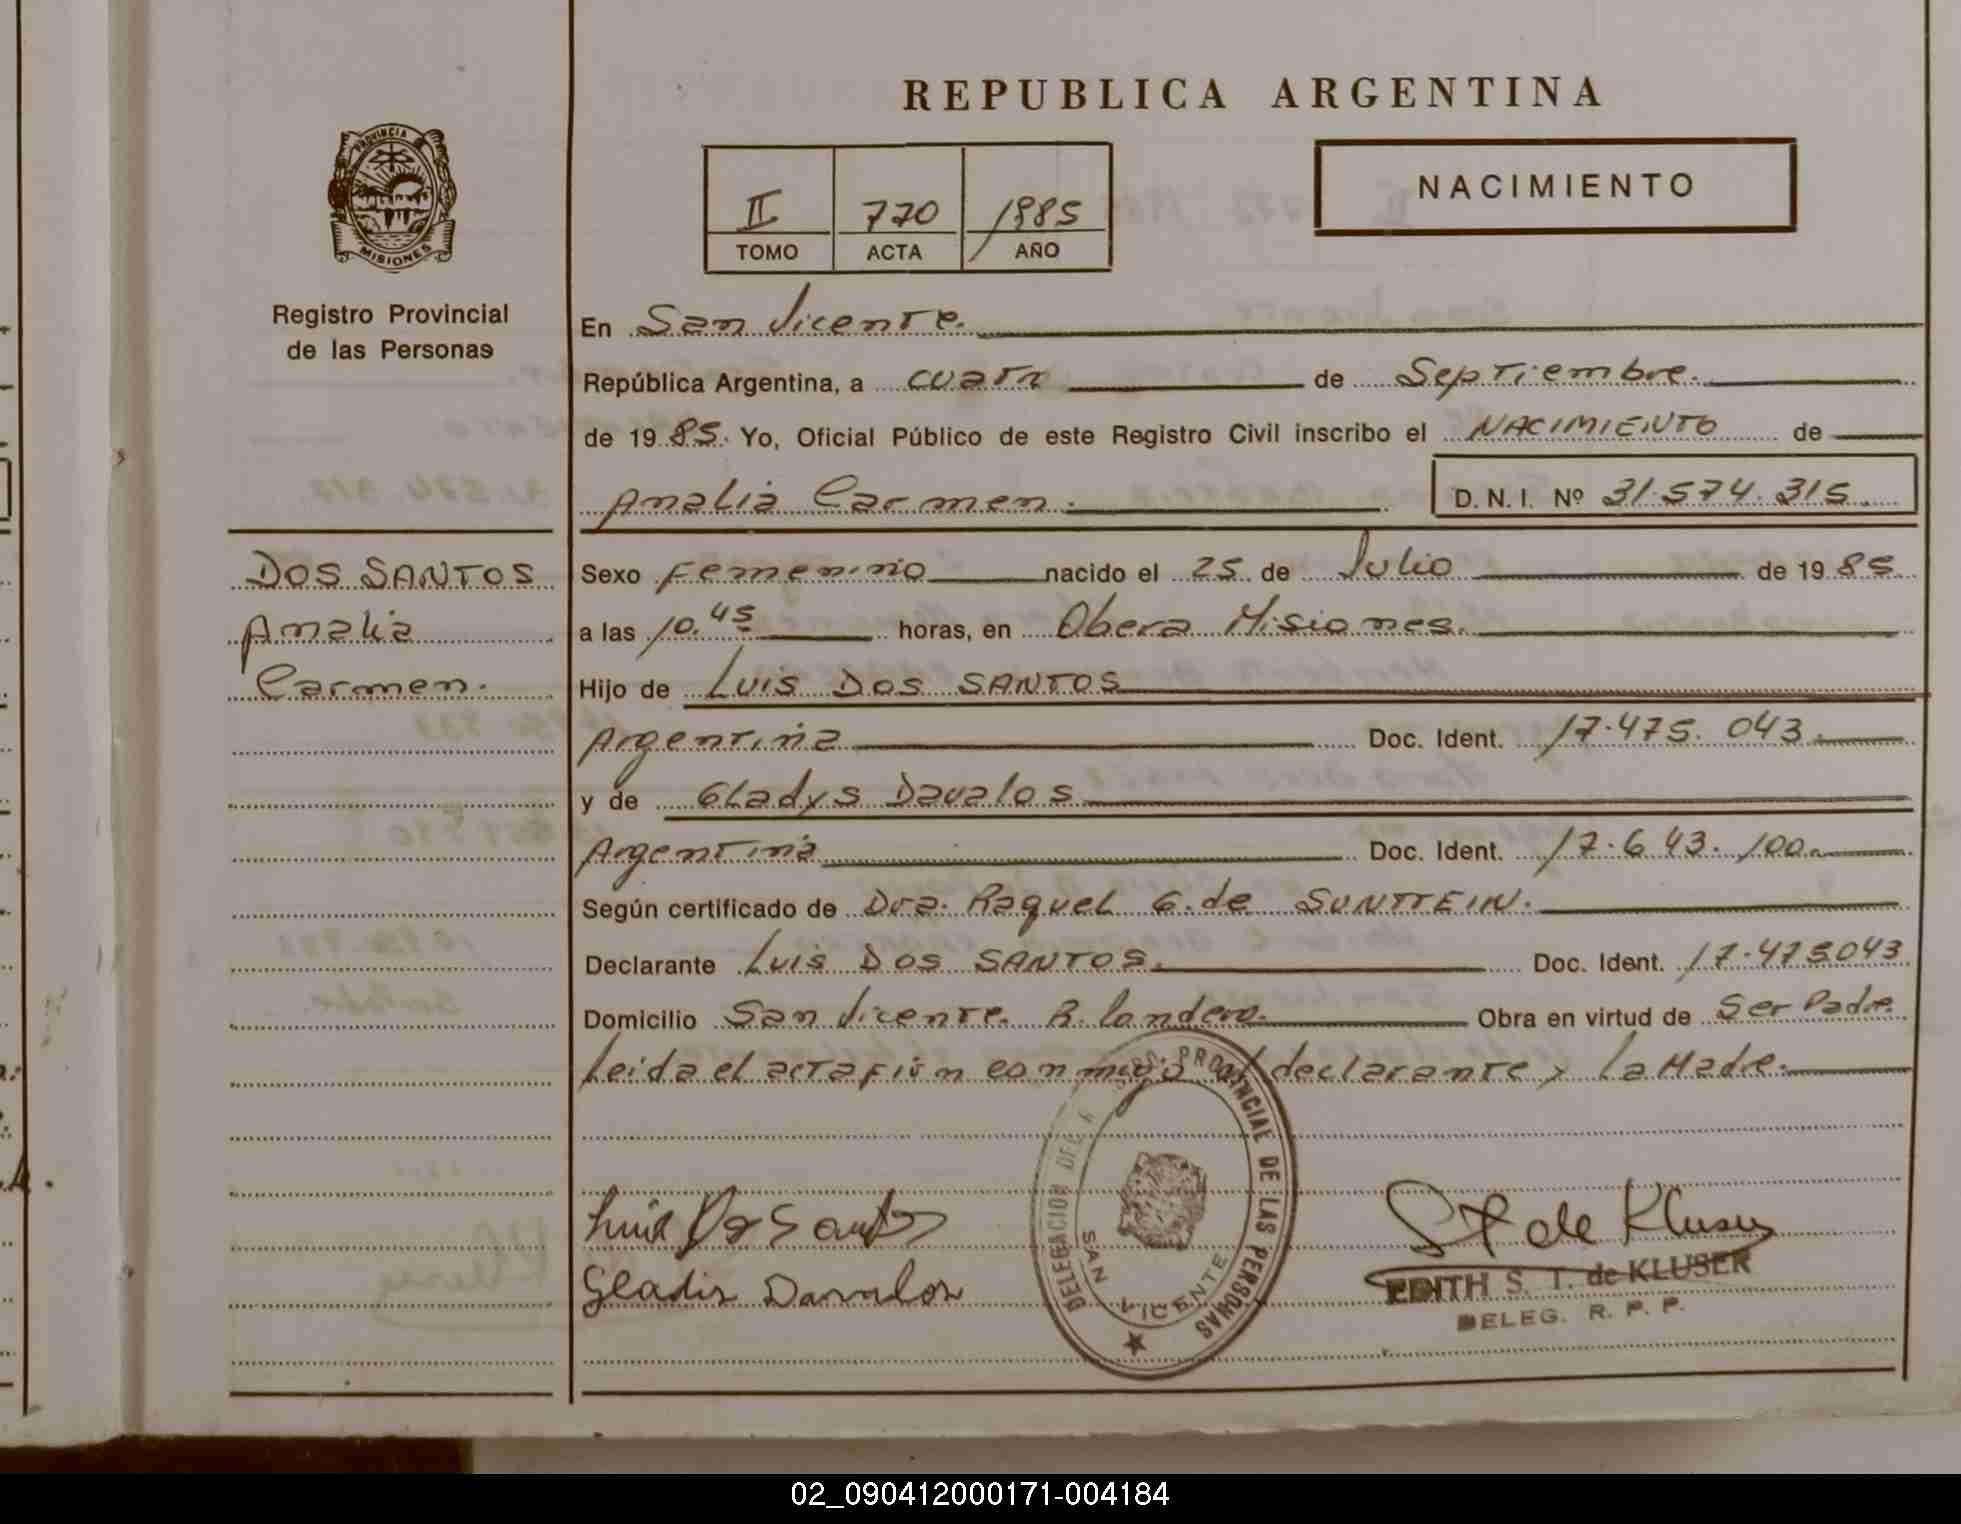 REPUBLICA ARGENTINA
PROVINCIA
MISIONES
Registro Provincial
de las Personas
II 770 1985
TOMO ACTA AÑO
NACIMIENTO
En San Vicente.
República Argentina, a cuatro de Septiembre.
de 1985. Yo, Oficial Público de este Registro Civil inscribo el NACIMIENTO de
Analia Carmen. D. N. I. Nº 31.574.315.
DOS SANTOS
Analia
Carmen.
Sexo Femenino nacido el 25 de Julio de 1985
a las 10.45 horas, en Obera Misiones.
Hijo de LUIS DOS SANTOS
Argentina Doc. Ident. 17.475.043.
y de GLadys Davalos
Argentina Doc. Ident. 17.643.100.
Según certificado de Dra. Raquel G. de
Declarante Luis DOS SANTOS. Doc. Ident. 17.475043
Domicilio San Vicente. B. Obra en virtud de Ser Padre.
Leida el acta firman conmigo el declarante y la Madre.
DELEGACION DEL PROVINCIAL DE LAS PERSONAS
SAN VICENTE
Luis Dos Santos
Gladis Davalos
St de Kluser
EDITH S. T. de KLUSER
DELEG. R. P. P.
02_090412000171-004184